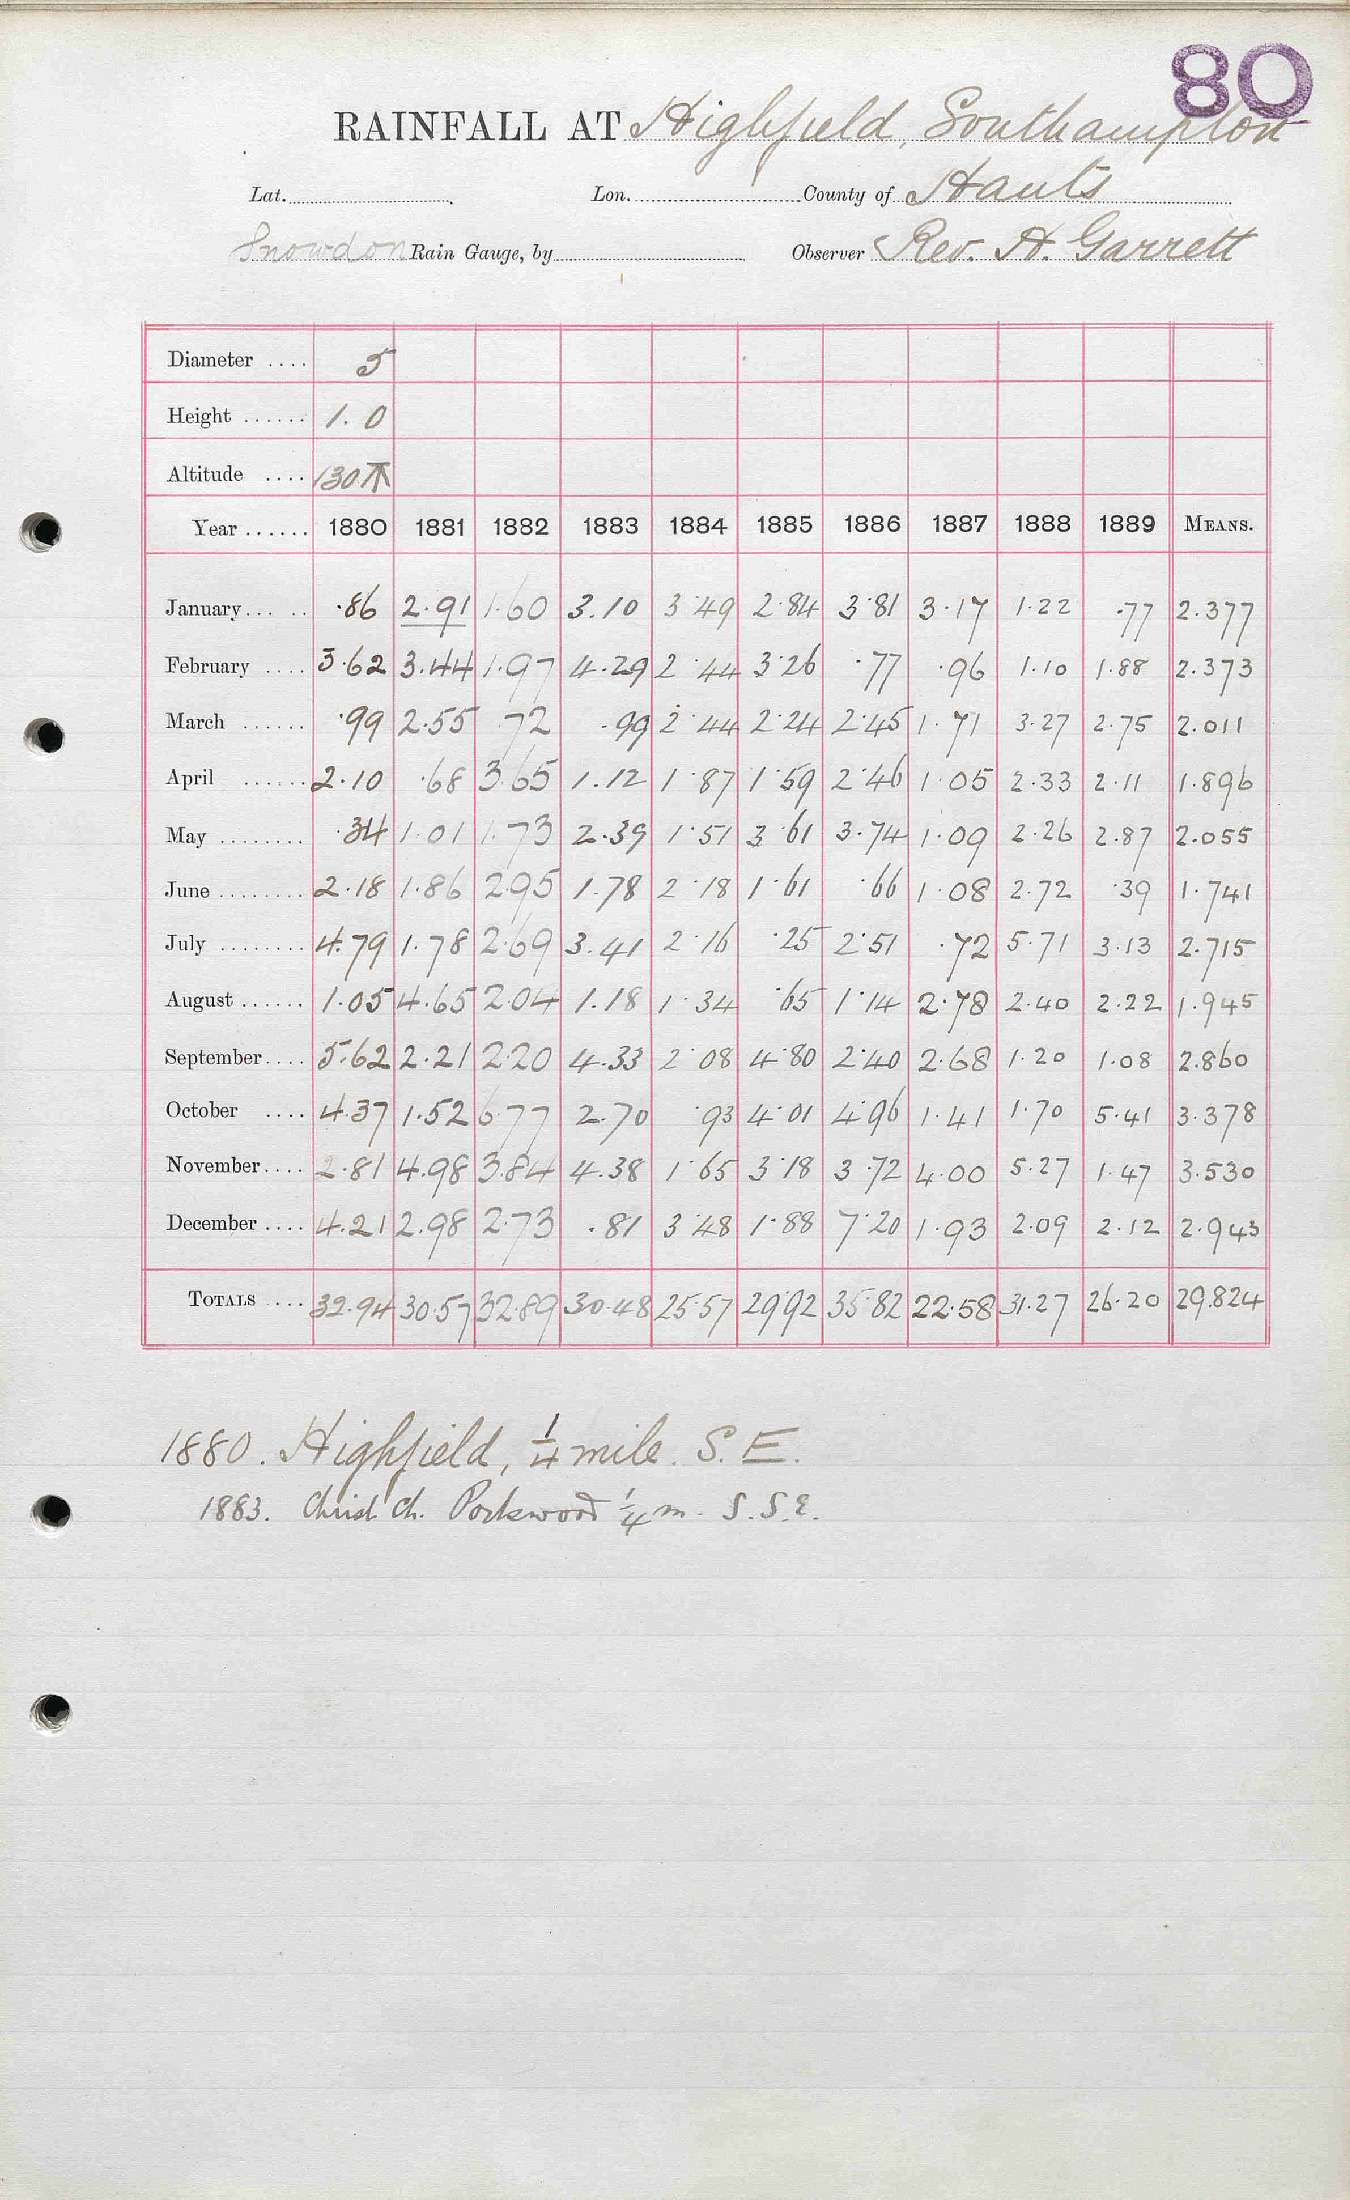 80
RAINFALL AT Highfield, Southampton
Lat. Lon. County of Hants
Snowdon Rain Gauge, by Observer Rev. H. Garrett
Diameter .... 5
Height ...... 1.0
Altitude .... 130
Year ...... 1880 1881 1882 1883 1884 1885 1886 1887 1888 1889 MEANS.
January ... .. .86 2.91 1.60 3.10 3.49 2.84 3.81 3.17 1.22 .77 2.377
February .... 3.62 3.44 1.97 4.29 2.44 3.26 .77 .96 1.10 1.88 2.373
March ...... .99 2.55 72 .99 2.44 2.24 2.45 1.71 3.27 2.75 2.011
April ...... 2.10 .68 3.65 1.12 1.87 1.59 2.46 1.05 2.33 2.11 1.896
May ........ .34 1.01 1.73 2.39 1.51 3.61 3.74 1.09 2.26 2.87 2.055
June ........ 2.18 1.86 2.95 1.78 2.18 1.61 .66 1.08 2.72 .39 1.741
July ........ 4.79 1.78 2.69 3.41 2.16 .25 2.51 .72 5.71 3.13 2.715
August ...... 1.05 4.65 2.04 1.18 1.34 .65 1.14 2.78 2.40 2.22 1.945
September .... 5.62 2.21 2.20 4.33 2.08 4.80 2.40 2.68 1.20 1.08 2.860
October .... 4.37 1.52 6.77 2.70 .93 4.01 4.96 1.41 1.70 5.41 3.378
November .... 2.81 4.98 3.84 4.38 1.65 3.18 3.72 4.00 5.27 1.47 3.530
December .... 4.21 2.98 2.73 .81 3.48 1.88 7.20 1.93 2.09 2.12 2.943
TOTALS .... 32.94 30.57 32.89 30.48 25.57 29.92 35.82 22.58 31.27 26.20 29.824
1880. Highfield, 1/4 mile. S.E.
1883. Christ Ch. Portswood 1/4 m. S.S.E.